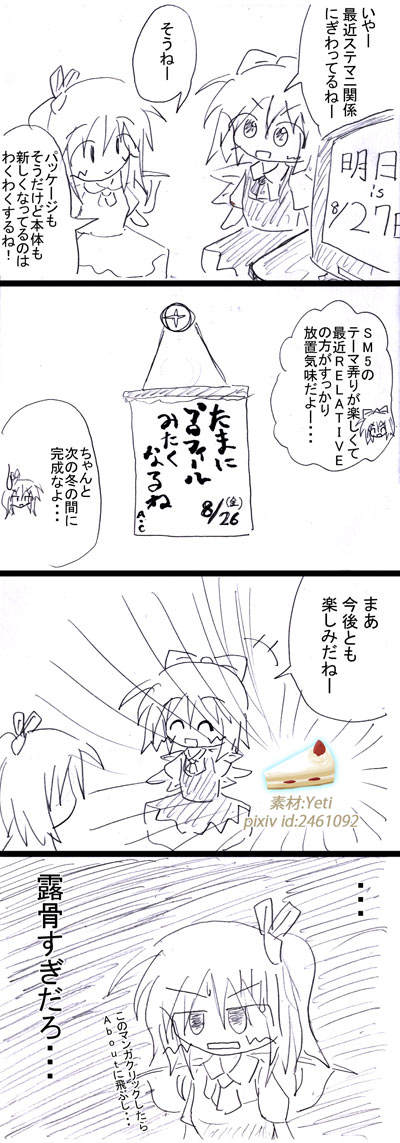 いやー
最近ステマニ関係
にぎわってるねー
そうねー
明日
is
8/27日
パッケージも
そうだけど本体も
新しくなってるのは
わくわくするね！
SM5の
テーマ弄りが楽しくて
最近RELATIVE
の方がすっかり
放置気味だよー！・・
たまに
プロフィール
みたく
なるね
8/26
(金)
A・C
ちゃんと
次の冬の間に
完成なよ・・・
まあ
今後とも
楽しみだねー
素材:Yeti
pixiv id:2461092
・・・
露骨すぎだろ・・・
このマンガクリックしたら
Aboutに飛ぶし・・・